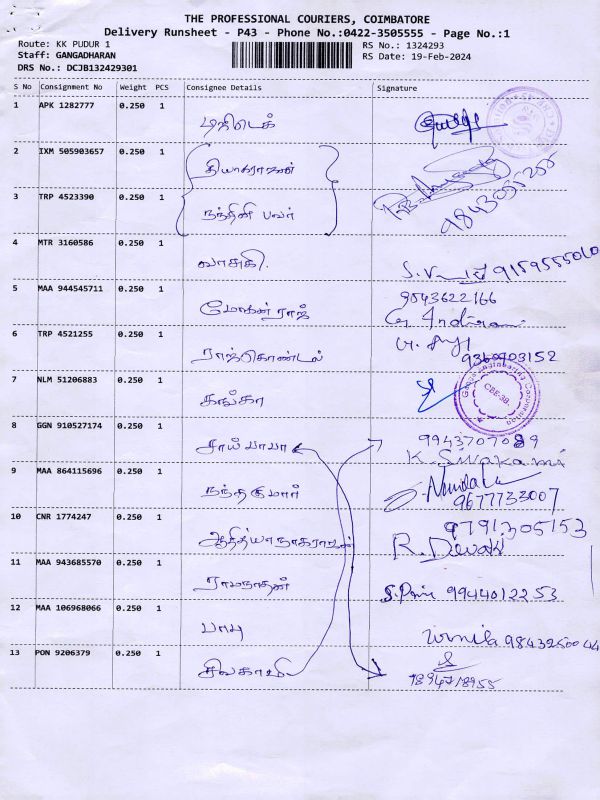 THE PROFESSIONAL COURIERS, COIMBATORE
Delivery Runsheet - P43 - Phone No.:0422-3505555 - Page No.:1
Route: KK PUDUR 1 RS No.: 1324293
Staff: GANGADHARAN RS Date: 19-Feb-2024
DRS No.: DCJB132429301
S No Consignment No Weight PCS Consignee Details Signature
1 APK 1282777 0.250 1
2 IXM 505903657 0.250 1 தியாகராஜன்
3 TRP 4523390 0.250 1 நந்தினி பவர் 9843055255
4 MTR 3160586 0.250 1 வாசுகி. 9159555060
5 MAA 944545711 0.250 1 மோகன் ராஜ் 9543622166
G. Indirani
6 TRP 4521255 0.250 1 ராஜ்கொண்டல் 9360903152
7 NLM 51206883 0.250 1 கங்கா Ganga Engineering Corporation CBE-38
8 GGN 910527174 0.250 1 சாய்பாபா 9943707089
K. Sivakami
9 MAA 864115696 0.250 1 நந்தகுமார் 9677733007
10 CNR 1774247 0.250 1 ஆதித்யா நாகராஜன் 9791305153
R. Devaki
11 MAA 943685570 0.250 1 ராமநாதன் 9944012253
12 MAA 106968066 0.250 1 பாபு 9843250044
13 PON 9206379 0.250 1 சிவகாமி 9894718955